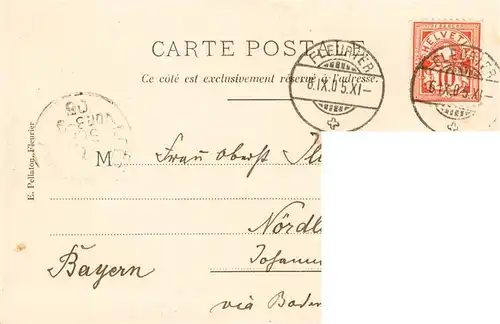 CARTE POSTALE
Ce côté est exclusivement réservé à l'adresse.
HELVETIA
10
FLEURIER
6.IX.05.XI-
FLEURIER
6.IX.05.XI-
E. Pellaton, Fleurier
M Frau Oberst
Nördl
Johann
Bayern
via Boden